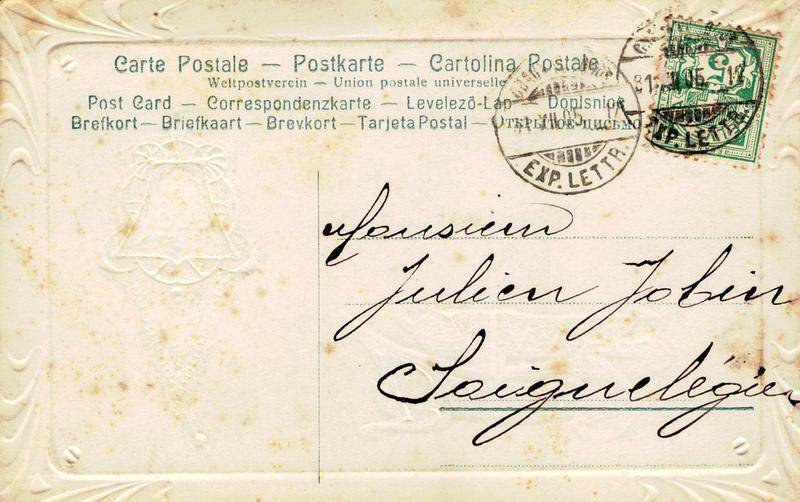 Carte Postale — Postkarte — Cartolina Postale
Weltpostverein — Union postale universelle
Post Card — Correspondenzkarte — Levelező-Lap — Dopisnice
Brefkort — Briefkaart — Brevkort — Tarjeta Postal — Открытое письмо
31 XII 05 12
EXP. LETTR.
EXP. LETTR.
Monsieur
Julien Jobin
Saignelégier